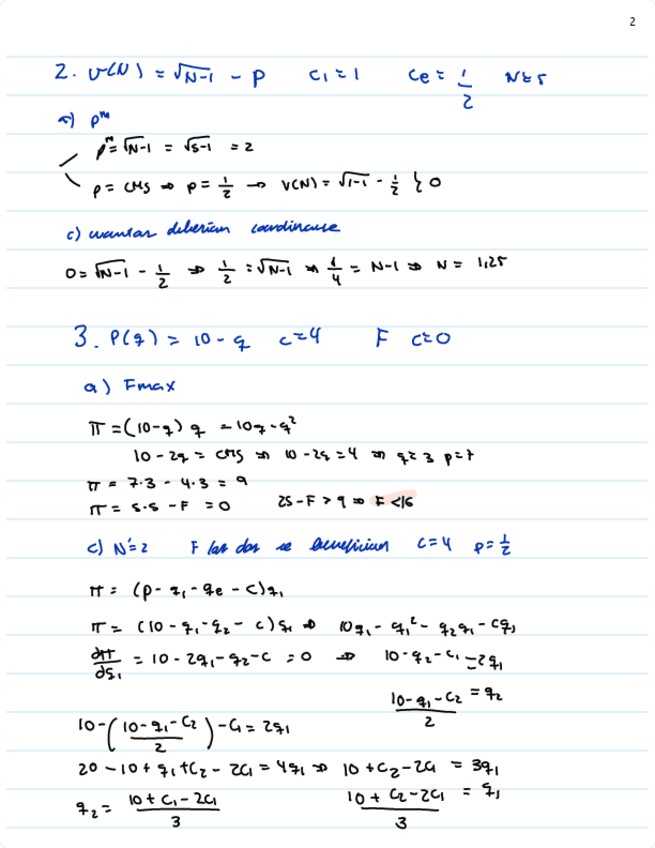 2
2. v(N) = √N-1 - p    c₁ = 1    ce = 1/2    N = 5
a) pᵐ
pᵐ = √N-1 = √5-1 = 2
p = CMS ⇒ p = 1/2 → V(N) = √1-1 - 1/2 } 0
c) cuantas deberian coordinarse
0 = √N-1 - 1/2 ⇒ 1/2 = √N-1 ⇒ 1/4 = N-1 ⇒ N = 1,25
3. P(q) = 10 - q    c=4    F    c=0
a) Fmax
π = (10-q) q = 10q - q²
10 - 2q = CMS ⇒ 10 - 2q = 4 ⇒ q = 3  p = 7
π = 7·3 - 4·3 = 9
π = 5·5 - F = 0    25 - F > 9 ⇒ F < 16
c) N=2    F las dos se benefician    c=4    p=1/2
π = (p - q₁ - qe - c) q₁
π = (10 - q₁ - q₂ - c) q₁ ⇒ 10q₁ - q₁² - q₂q₁ - cq₁
dπ/dq₁ = 10 - 2q₁ - q₂ - c = 0 ⇒ 10 - q₂ - c₁ = 2q₁
10 - q₁ - c₂ / 2 = q₂
10 - (10 - q₁ - c₂ / 2) - c₁ = 2q₁
20 - 10 + q₁ + c₂ - 2c₁ = 4q₁ ⇒ 10 + c₂ - 2c₁ = 3q₁
q₂ = 10 + c₁ - 2c₁ / 3    10 + c₂ - 2c₁ / 3 = q₁